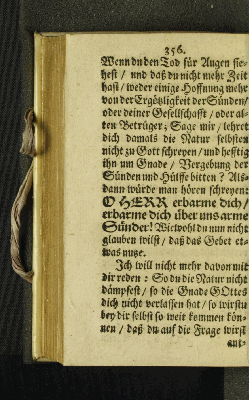 356.
Wenn du den Tod für Augen sie-
hest / und daß du nicht mehr Zeit
hast / weder einige Hoffnung mehr
von der Ergötzligkeit der Sünden /
oder deiner Gesellschafft / oder al-
ten Betrüger; Sage mir / lehret
dich damals die Natur selbsten
nicht zu Gott schreyen / und hefftig
ihn um Gnade / Vergebung der
Sünden und Hülffe bitten? Als-
dann würde man hören schreyen:
O HERR erbarme dich /
erbarme dich über uns arme
Sünder! Wiewohl du nun nicht
glauben wilst / daß das Gebet et-
was nutze.
Ich will nicht mehr davon mit
dir reden: So du die Natur nicht
dämpfest / so die Gnade GOttes
dich nicht verlassen hat / so wirstu
bey dir selbst so weit kommen kön-
nen / daß du auf die Frage wirst
ant-